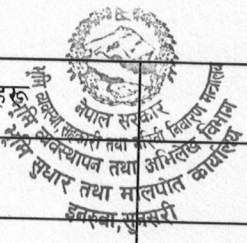 हरू
नेपाल सरकार
भूमि व्यवस्था, सहकारी तथा गरिबी निवारण मन्त्रालय
भूमि व्यवस्थापन तथा अभिलेख विभाग
भूमि सुधार तथा मालपोत कार्यालय
इनरुवा, सुनसरी